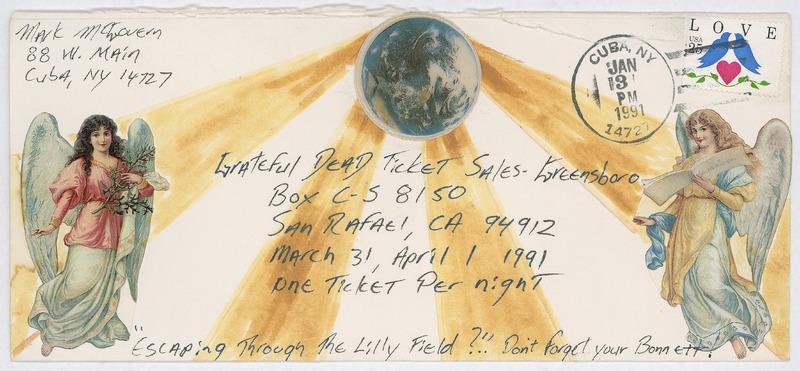 Mark McGovern
88 W. Main
Cuba, NY 14727
CUBA, NY
JAN
3
PM
1991
14727
LOVE
USA
25
Grateful Dead Ticket Sales - Greensboro
Box C-S 8150
San Rafael, CA 94912
March 31, April 1 1991
one Ticket Per night
"Escaping Through The Lilly Field?".. Don't forget your Bonnett!